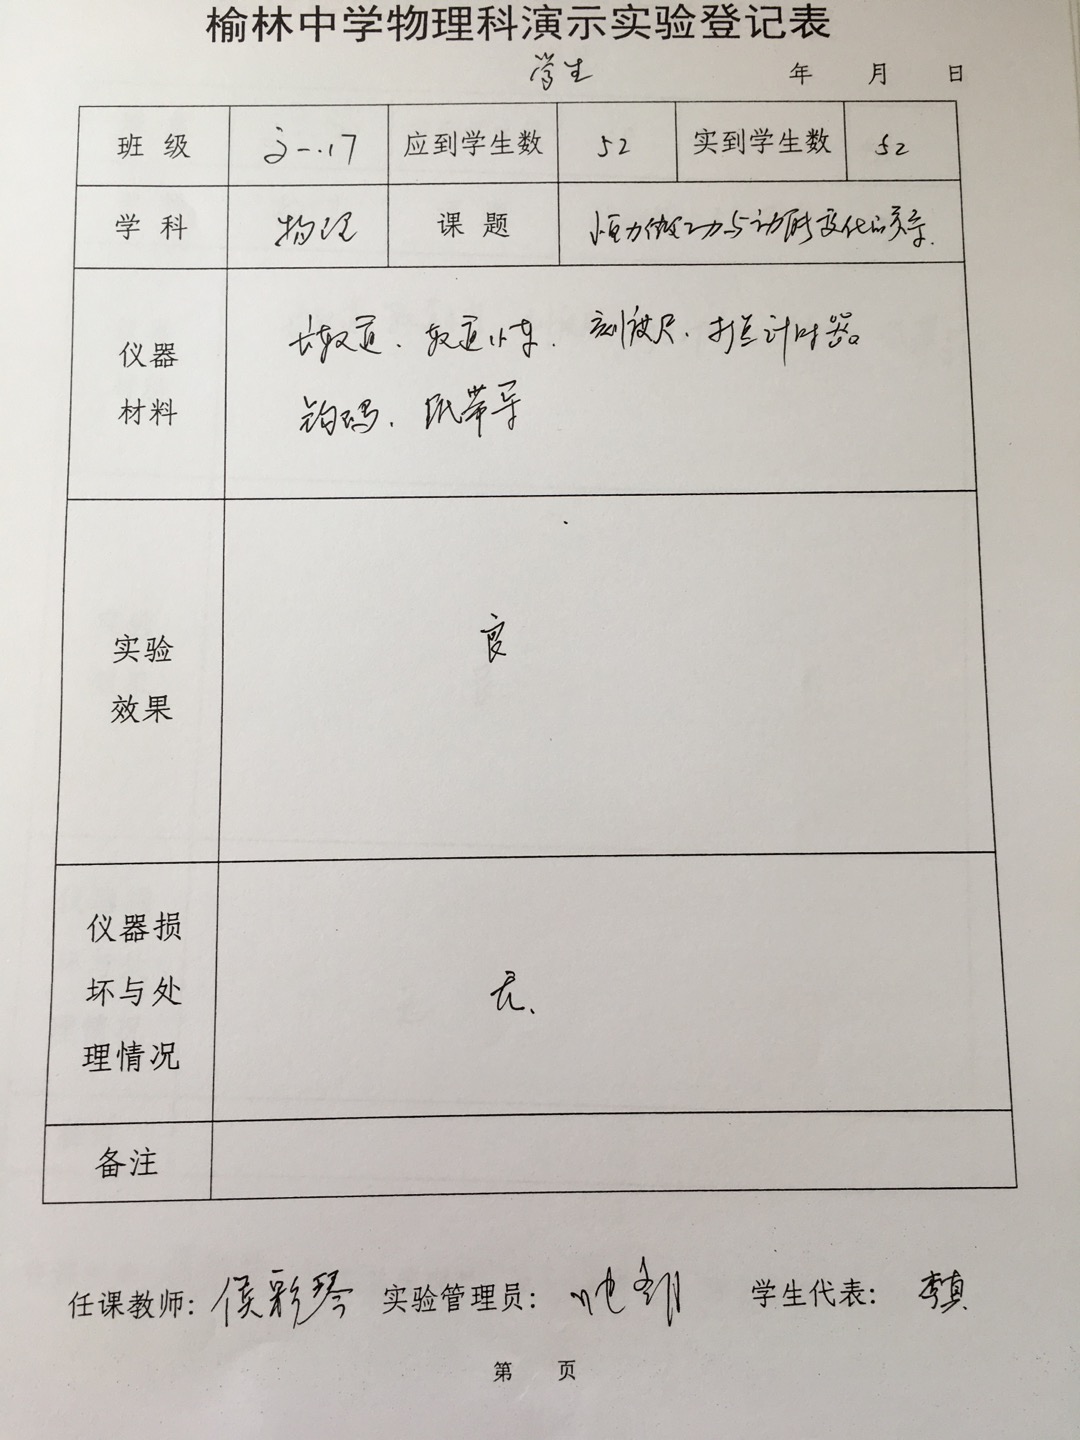 榆林中学物理科演示实验登记表
学生
年 月 日
班 级 高一.17 应到学生数 52 实到学生数 52
学 科 物理 课 题 恒力做功与动能变化的关系.
仪器
材料
长轨道、轨道小车、刻度尺、打点计时器
钩码、纸带等
实验
效果
良
仪器损
坏与处
理情况
无、
备注
任课教师: 侯彩琴 实验管理员: 学生代表: 李真
第 页